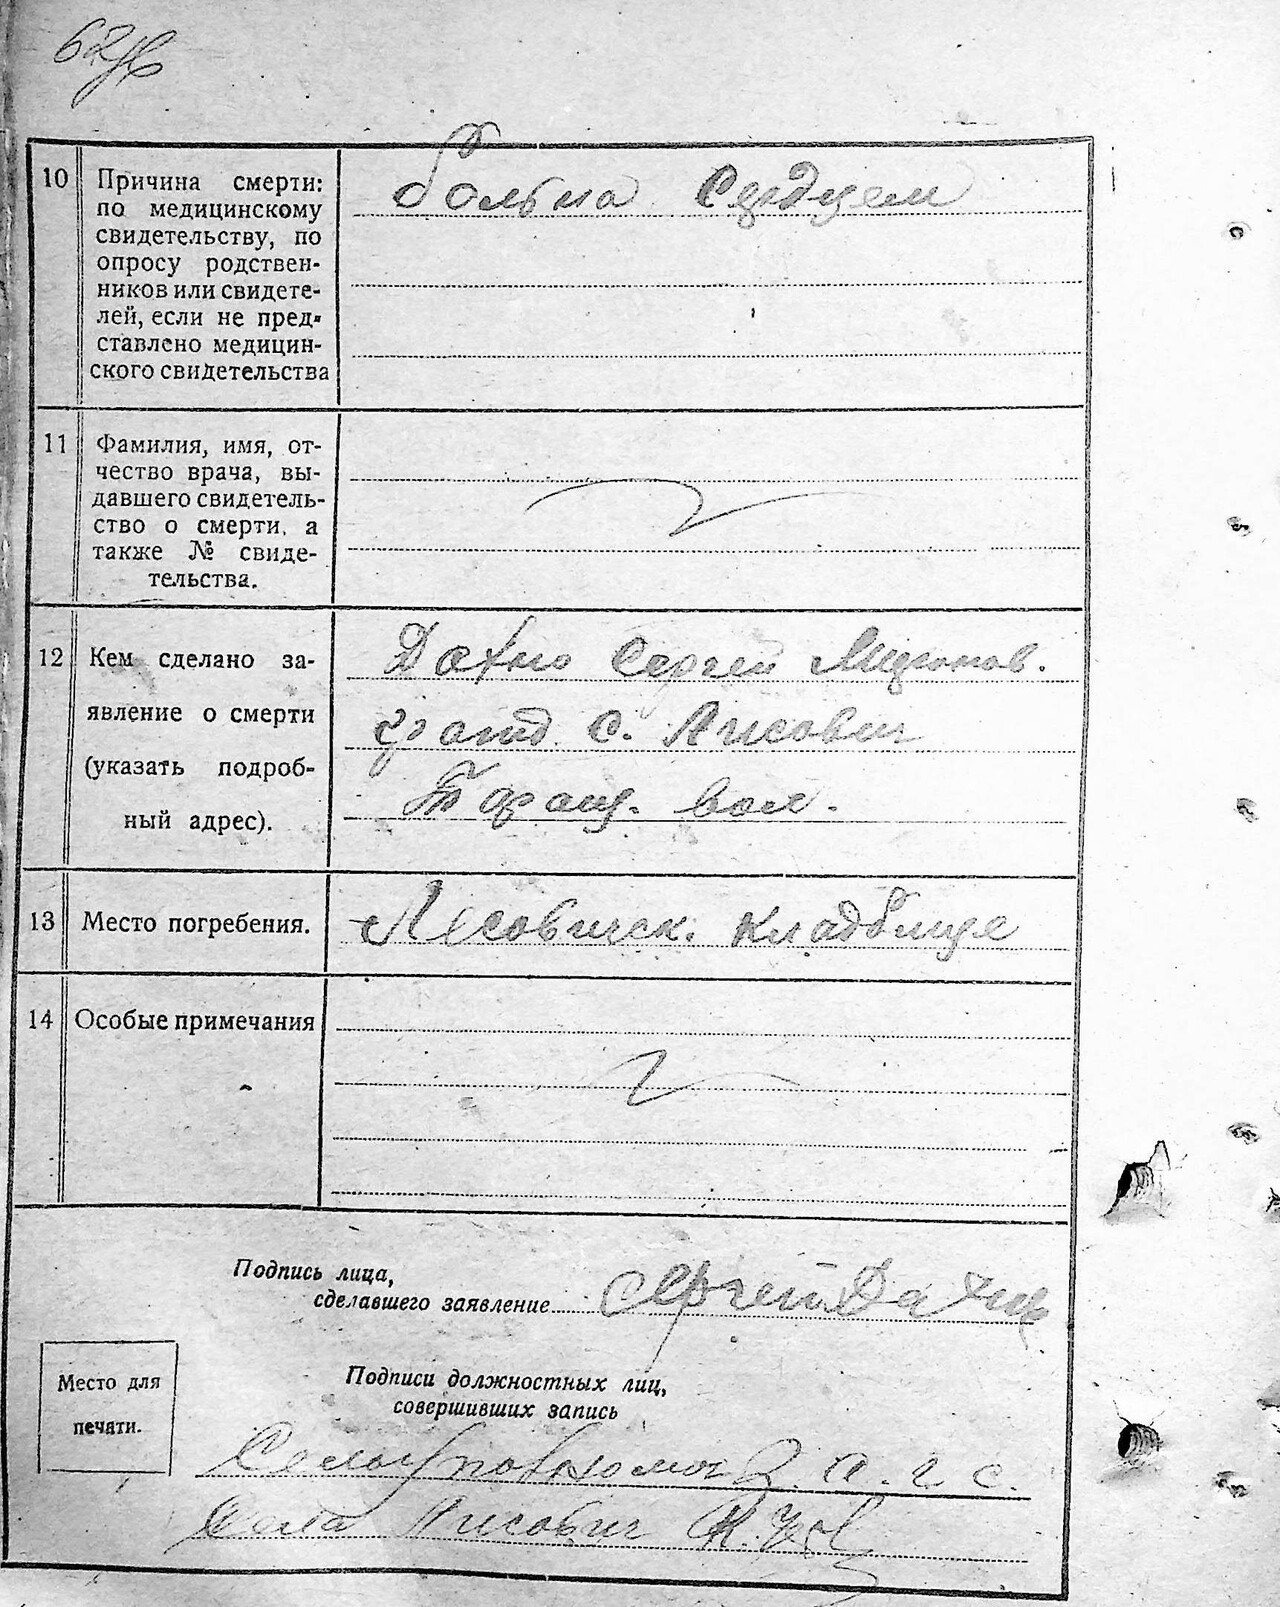 10
Причина смерти:
по медицинскому
свидетельству, по
опросу родствен-
ников или свидете-
лей, если не пред-
ставлено медицин-
ского свидетельства
больна Сердцем
11
Фамилия, имя, от-
чество врача, вы-
давшего свидетель-
ство о смерти, а
также № свиде-
тельства.
12
Кем сделано за-
явление о смерти
(указать подроб-
ный адрес).
Дахно Сергей Миронов.
гражд. С. Лисович
Таращ. вол.
13
Место погребения.
Лесовичск. кладбище
14
Особые примечания
Подпись лица,
сделавшего заявление
Сергей Дахно
Место для
печати.
Подписи должностных лиц,
совершивших запись
Сельуповномоч З. а. г. с.
Села Лисович